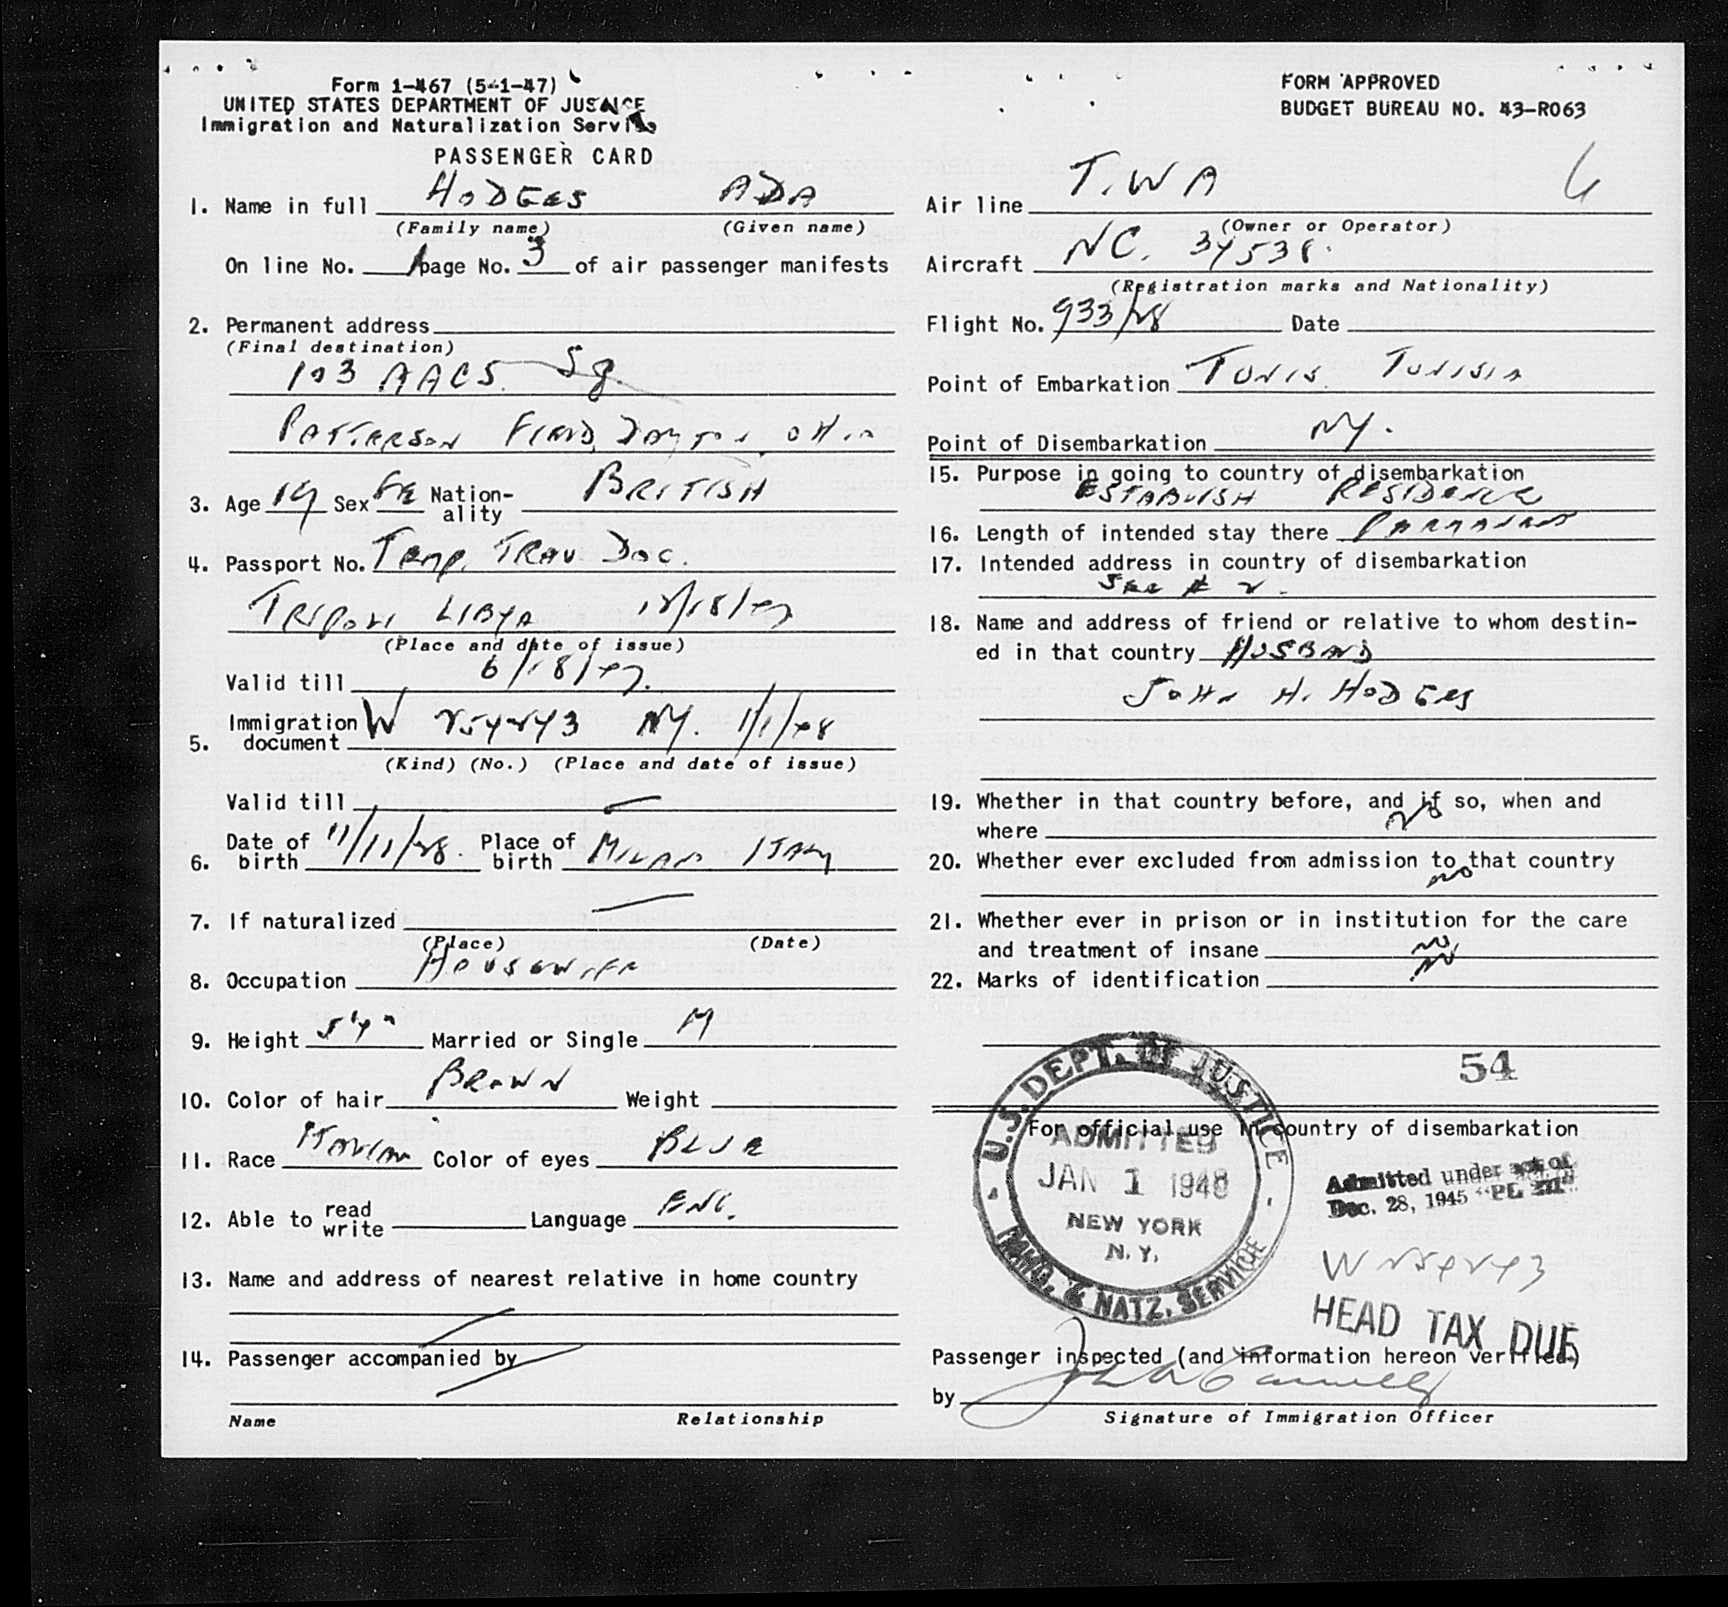 Form 1-467 (5-1-47)
UNITED STATES DEPARTMENT OF JUSTICE
Immigration and Naturalization Service
PASSENGER CARD
FORM APPROVED
BUDGET BUREAU NO. 43-R063
6
1. Name in full HODGES ADA
(Family name) (Given name)
On line No. 1 page No. 3 of air passenger manifests
2. Permanent address
(Final destination)
103 AACS. Sq.
PATTERSON FIELD, DAYTON, OHIO
3. Age 19 Sex FE Nation-
ality BRITISH
4. Passport No. TEMP. TRAV. DOC.
TRIPOLI LIBYA 12/18/47
(Place and date of issue)
Valid till 6/18/47.
5. Immigration
document W 254243 NY. 1/1/48
(Kind) (No.) (Place and date of issue)
Valid till —
6. Date of
birth 11/11/28. Place of
birth MILAN ITALY
7. If naturalized —
(Place) (Date)
8. Occupation HOUSEWIFE
9. Height 5'4" Married or Single M
10. Color of hair BROWN Weight
11. Race ITALIAN Color of eyes BLUE
12. Able to read
write Language ENG.
13. Name and address of nearest relative in home country
14. Passenger accompanied by
Name Relationship
Air line T.W A
(Owner or Operator)
Aircraft NC. 34538.
(Registration marks and Nationality)
Flight No. 933/28 Date
Point of Embarkation TUNIS TUNISIA
Point of Disembarkation NY.
15. Purpose in going to country of disembarkation
ESTABLISH RESIDENCE
16. Length of intended stay there PERMANENT
17. Intended address in country of disembarkation
SEE # 2.
18. Name and address of friend or relative to whom destin-
ed in that country HUSBAND
JOHN H. HODGES
19. Whether in that country before, and if so, when and
where NO
20. Whether ever excluded from admission to that country
NO
21. Whether ever in prison or in institution for the care
and treatment of insane NO
22. Marks of identification NO
54
For official use in country of disembarkation
U.S. DEPT. OF JUSTICE
ADMITTED
JAN 1 1948
NEW YORK
N. Y.
IMMG. & NATZ. SERVICE
Admitted under act of
Dec. 28, 1945 "PL 271"
W 254243
HEAD TAX DUE
Passenger inspected (and information hereon verified)
by
Signature of Immigration Officer